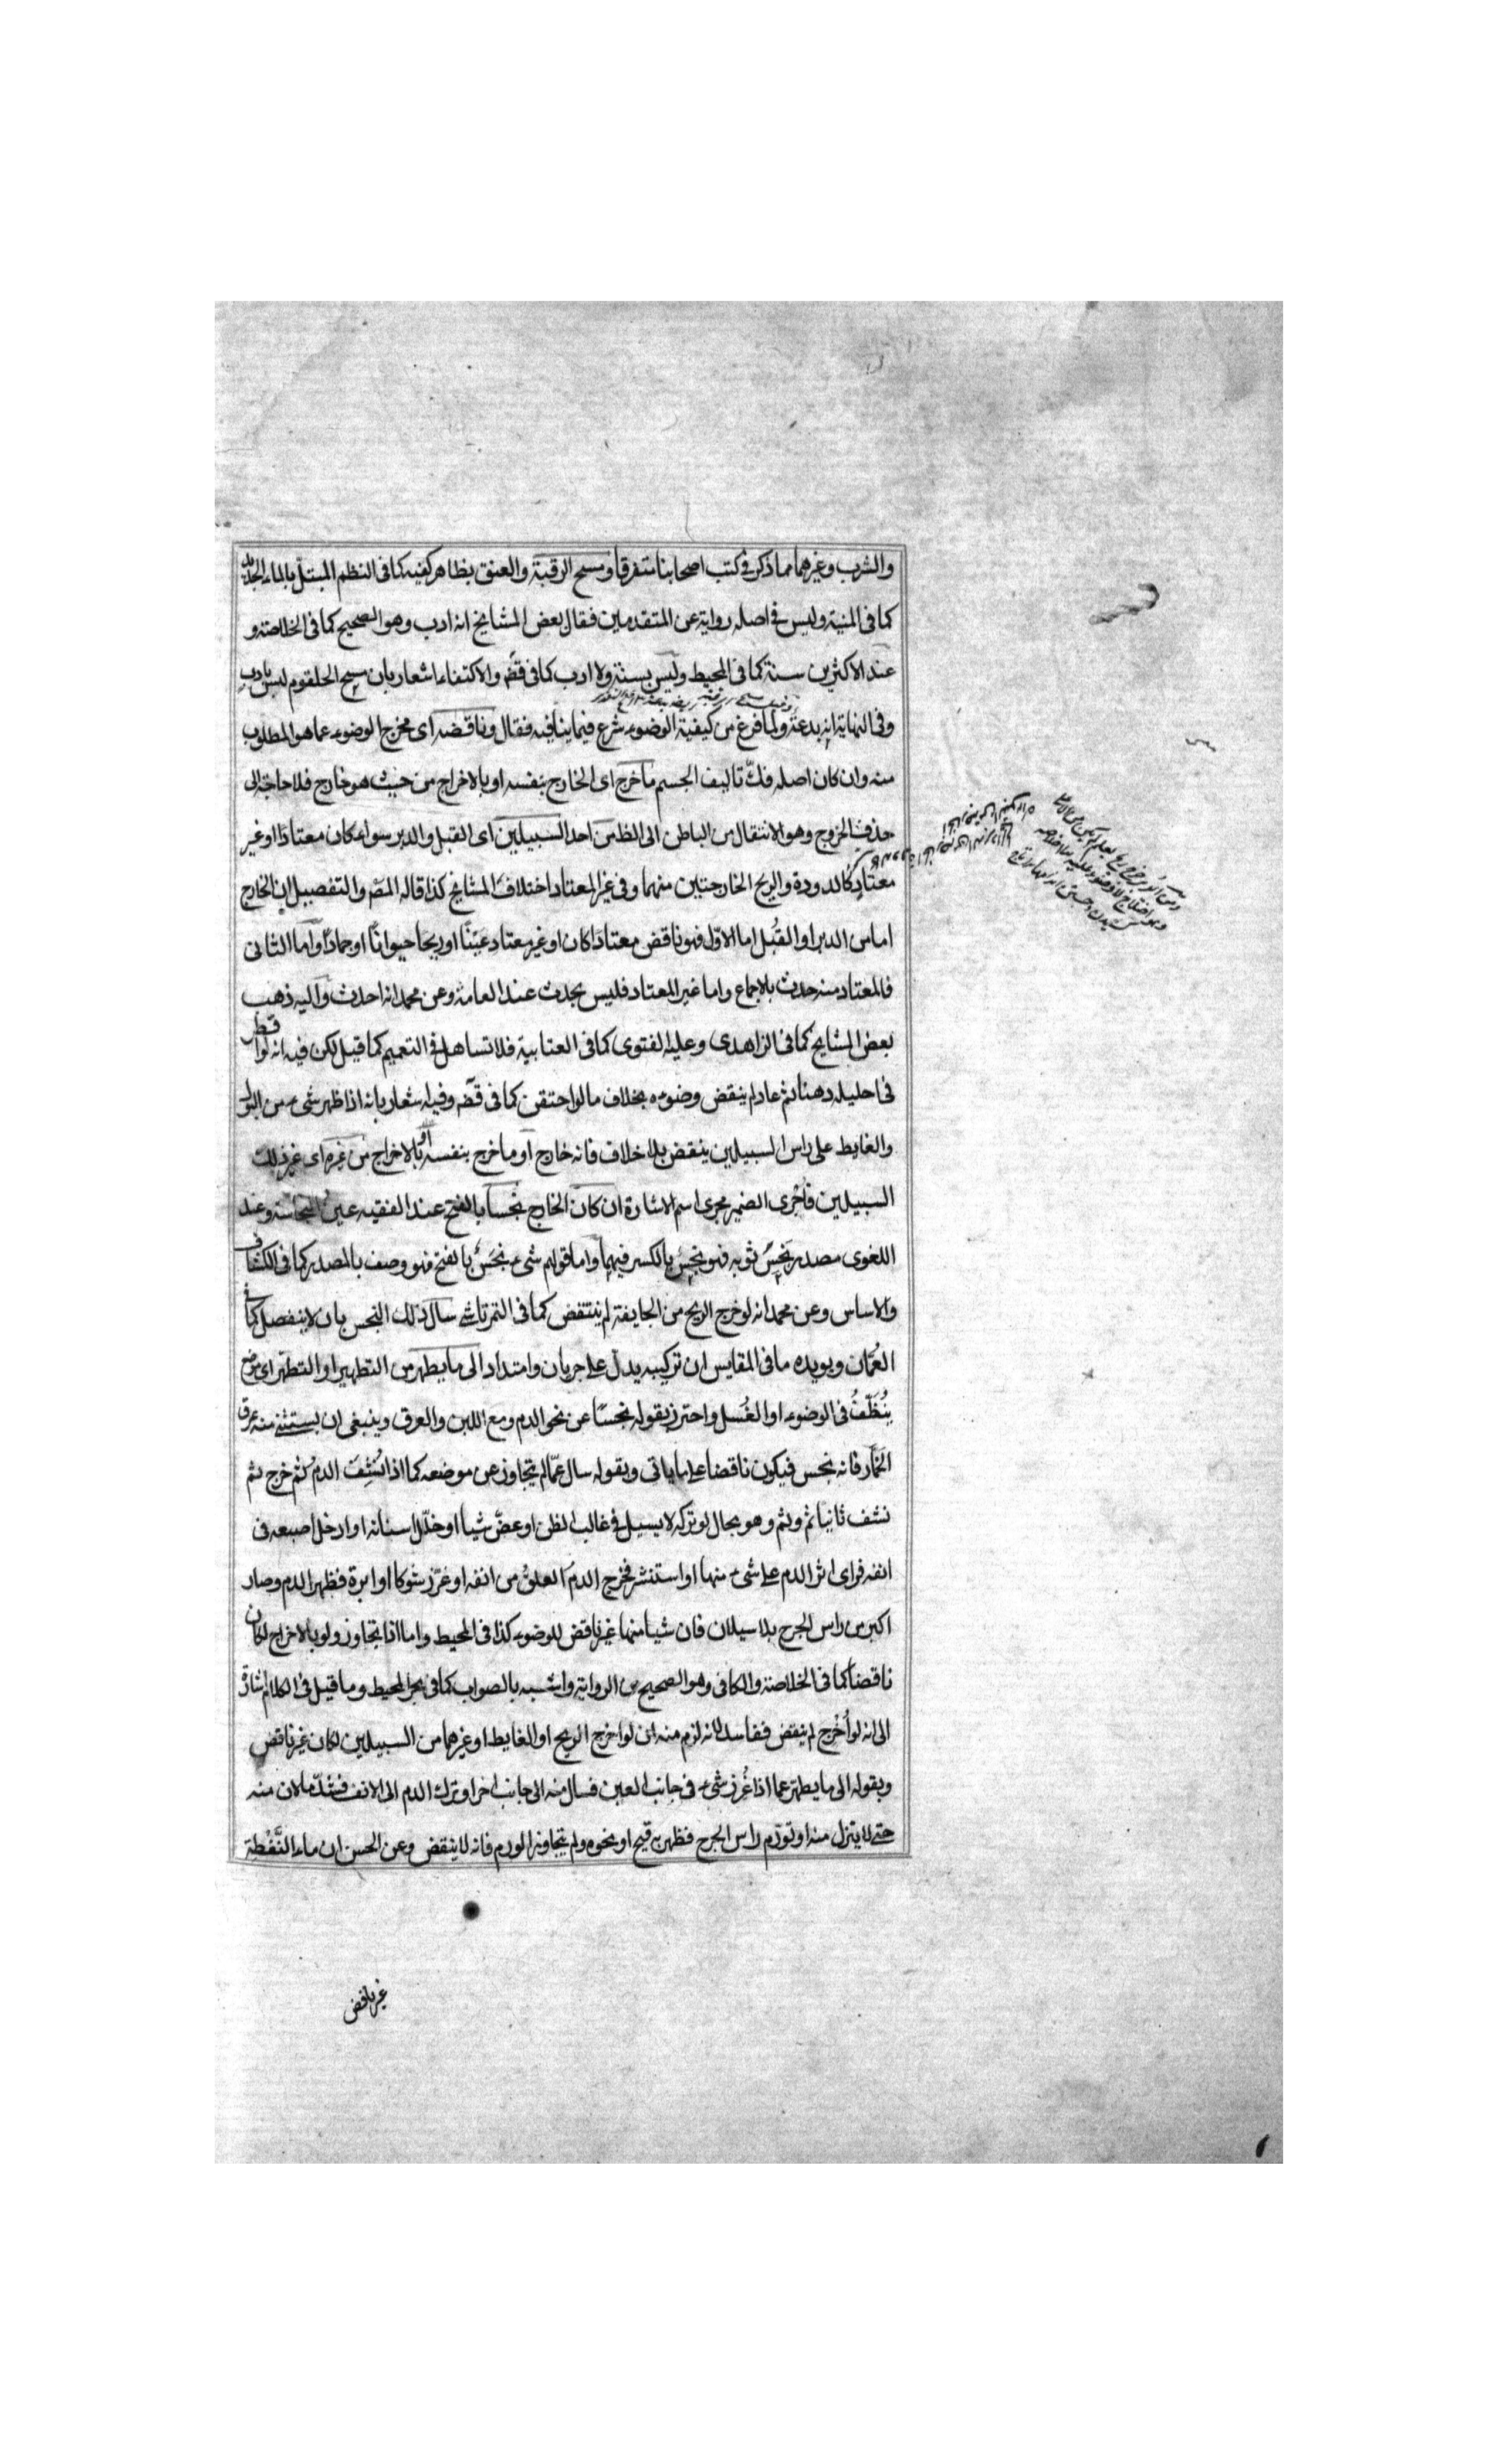 والشرب وغيرهما مما ذكر في كتب اصحابنا متفرقا ومسح الرقبة والعنق بظاهر كفيه كما في النظم المبتل بالماء الجديد
كما في المنية وليس في اصله رواية عن المتقدمين فقال بعض المشايخ انه ادب وهو الصحيح كما في الخلاصة و
عند الاكثرين سنة كما في المحيط وليس بسنة ولا ادب كما في قضـ والاكتفاء اشعار بان مسح الحلقوم ليس بادب
وفي النهاية انه بدعة ولما فرغ من كيفية الوضوء شرع فيما ينافيه فقال وناقضه اى مخرج الوضوء عما هو المطلوب
منه وان كان اصله فك تاليف الجسم ما خرج اى الخارج بنفسه او بالاخراج من حيث هو خارج فلا حاجة الى
حذف الخروج وهو الانتقال من الباطن الى الظـ من احد السبيلين اى القبل والدبر سواء كان معتادا او غير
معتاد كالدودة والريح الخارجتين منهما وفي غير المعتاد اختلاف المشايخ كذا قاله المصـ والتفصيل ان الخارج
اما من الدبر او القبل اما الاول فهو ناقض معتادا كان او غير معتاد عينا او ريحا حيوانا او جمادا واما الثانى
فالمعتاد منه حدث بالاجماع واما غير المعتاد فليس بحدث عند العامة وعن محمد انه احدث واليه ذهب
بعض المشايخ كما في الزاهدى وعليه الفتوى كما في العتابية فلا تساهل في التعميم كما قيل لكن فيه انه لو اقطر
فى احليله دهنا ثم عاد لم ينقض وضوءه بخلاف ما لو احتقن كما فى قضـ وفيه اشعار بانه اذا ظهر شىء من البول
والغايط على راس السبيلين ينقض بلا خلاف فانه خارج او ما خرج بنفسه او بالاخراج من غيره اى غير ذلك
السبيلين فاجرى الضمير مجرى اسم الاشارة ان كان الخارج نجسا بالفتح عند الفقيه عين النجاسة وعند
اللغوى مصدر نجس ثوبه فهو نجس بالكسر فيهما واما قولهم شىء نجس بالفتح فهو وصف بالمصدر كما فى الكشاف
والاساس وعن محمد انه لو خرج الريح من الجايفة لم ينتقض كما في التمرتاشى سال ذلك النجس بان لا ينفصل كما فى
العمان ويويده ما فى المقايس ان تركيبه يدل على جريان وامتداد الى ما يطهر من التطهير او التطهر اى موضع
ينظف فى الوضوء او الغسل واحترز بقوله نجسا عن نحو الدم ومع اللبن والعرق وينبغى ان يستثنى منه عرق
الخمار فانه نجس فيكون ناقضا على ما ياتى وبقوله سال عما لم يتجاوز عن موضعه كما اذا نشف الدم ثم خرج ثم
نشف ثانيا ثم وثم وهو بحال لو تركه لا يسيل فى غالب الظن او عض شيا او خلل اسنانه او ادخل اصبعه فى
انفه فراى اثر الدم على شىء منها او استنثر فخرج الدم العلق من انفه او غرز شوكا او ابرة فظهر الدم وصار
اكبر من راس الجرح بلا سيلان فان شيا منها غير ناقض للوضوء كذا فى المحيط واما اذا تجاوز ولو بالاخراج لكان
ناقضا كما فى الخلاصة والكافى وهو الصحيح من الرواية واشبه بالصواب كما فى بحر المحيط وما قيل فى الكلام اشارة
الى انه لو اخرج لم ينقض ففاسد لانه لزم منه ان لو اخرج الريح او الغايط او غيرهما من السبيلين لكان غير ناقض
وبقوله الى ما يطهر عما اذا غرز شىء فى جانب العين فسال منه الى جانب اخر او ترك الدم الى الانف فشد ما لان منه
حتى لا يتنزل منه او تورم راس الجرح فظهر به قيح او نحوه ولم يتجاوز الورم فانه لا ينقض وعن الحسن ان ماء النفطة
غير ناقض